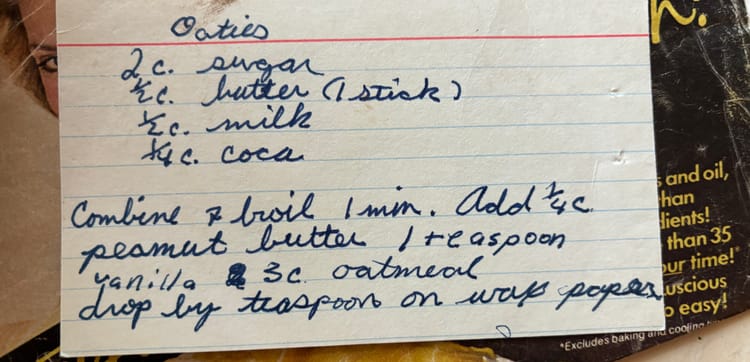 Oaties
2 c. sugar
½ c. butter (1 stick)
½ c. milk
¼ c. coca
Combine & broil 1 min. Add ¼ c
peamut butter 1 teaspoon
vanilla & 3 c. oatmeal
drop by teaspoon on wax paper
h!
and oil,
than
dients!
than 35
ur time!*
uscious
o easy!
*Excludes baking and cooling